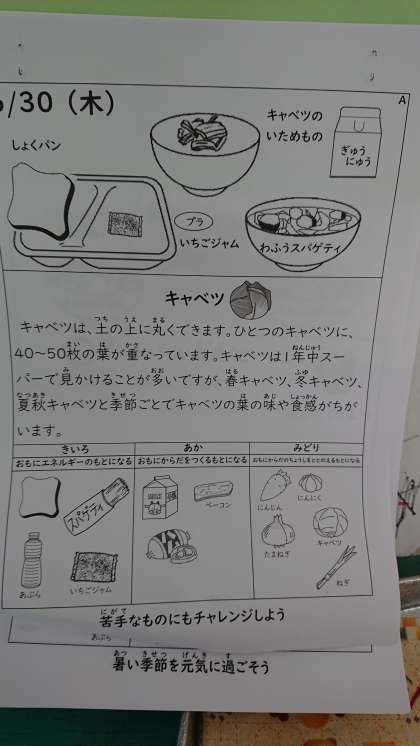 /30（木）
A
しょくパン
キャベツの
いためもの
ぎゅう
にゅう
プラ
いちごジャム
わふうスパゲティ
キャベツ
キャベツは、土の上に丸くできます。ひとつのキャベツに、
40～50枚の葉が重なっています。キャベツは1年中スー
パーで見かけることが多いですが、春キャベツ、冬キャベツ、
夏秋キャベツと季節ごとでキャベツの葉の味や食感がちが
います。
きいろ
おもにエネルギーのもとになる
あか
おもにからだをつくるもとになる
みどり
おもにからだのちょうしをととのえるもとになる
スパゲティ
あぶら
いちごジャム
ベーコン
にんじん
にんにく
たまねぎ
キャベツ
ねぎ
苦手なものにもチャレンジしよう
あぶら
暑い季節を元気に過ごそう